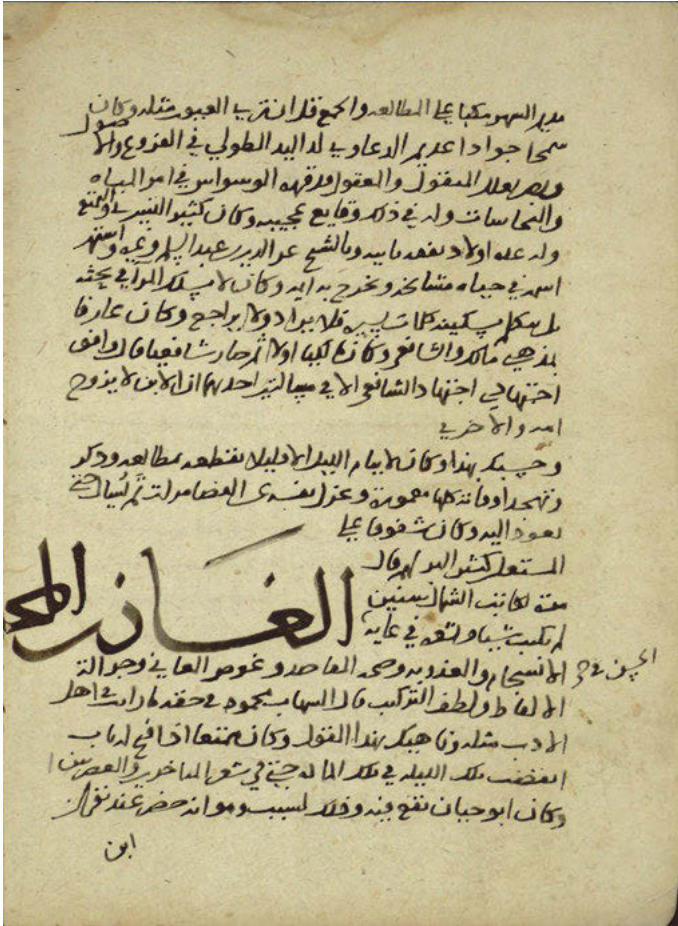 مديد السهر مكبا على المطالعة والجمع قل ان ترى العيون مثله وكان
سمحا جوادا عديم الدعاوي له اليد الطولى في الفروع والاصول
وبصر بعلل المنقول والمعقول قد قهره الوسواس في امر المياه
والنجاسات وله في ذلك وقايع عجيبه وكان كثير التسري والتمتع
وله عدة اولاد تفقه بابيه وبالشيخ عز الدين بن عبد السلام وغيره واشتهر
اسمه في حياة مشايخه وتخرج به ايمه وكان لا يسلك المرا في بحثه
بل يتكلم بسكينه كلمات يسيره فلا يراد ولا يراجع وكان عارفا
بمذهبي مالك والشافعي وكان مالكيا اولا ثم صار شافعيا قال وافق
اجتهادي اجتهاد الشافعي الا في مسالتين احدهما ان الابن لا يزوج
امه والاخرى
وحسبك بهذا وكان لا ينام الليل الا قليلا يقطعه بمطالعه وذكر
وتهجد اوقاته كلها معمورة وعزل نفسه من القضا مرات ثم يسال حتى
يعود اليه وكان شفوقا على
المشتغلين كثير البر لهم قال
مرة لكاتب الشمال سنين
لم يكتب شيا وشعره في غاية
الانسجام والعذوبه وصحة المقاصد وغوص المعاني وجزالة
الالفاظ ولطف التركيب قال الشهاب محمود في حقه ما رايت في اهل
الادب مثله وناهيك بهذا القول وكان ممتعا اذا فتح له باب
انقضت تلك الليله في تلك الماده حتى في شعر المتاخرين والعصريين
وكان ابو حيان يقع فيه وذلك لسبب وهو انه حضر عند
ابن